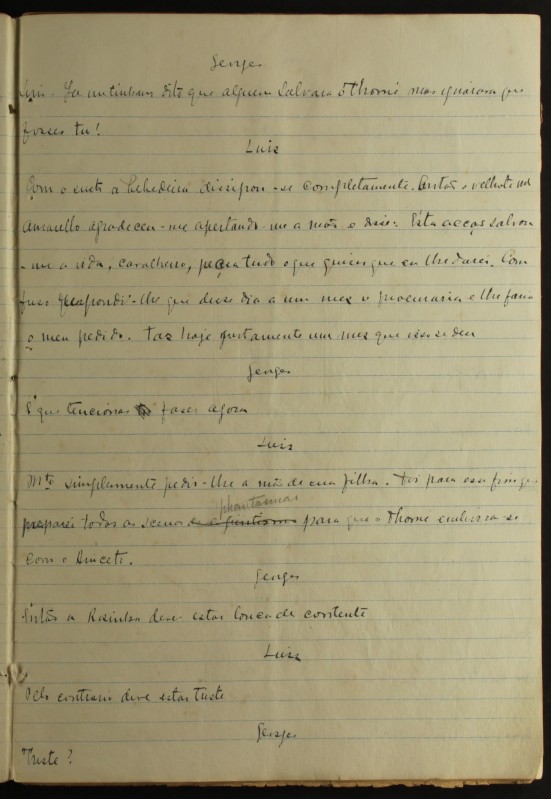 Jorge
Luiz. Ja me tinham dito que alguem salvara o Thomé mas ignorava que
fosses tu!
Luiz
Com o susto a bebedeira dissipou-se completamente. Então o velhote
Amarello agradeceu-me apertando-me a mão e disse: Esta acção salvou
-me a vida, cavalheiro, peça tudo o que quizer que eu lhe darei. Com
respondi-lhe que desse dia a um mez o procuraria e lhe faria
o meu pedido. Faz hoje justamente um mez que isso se deu
Jorge
E que tencionas fazer agora
Luiz
Mto simplesmente pedir-lhe a mão de sua filha. Foi para esse fim que
phantasmas
preparei todas as scenas para que o Thomé embirra-se
com o Aniceto.
Jorge
Então a Rosinha deve estar louca de contente
Luiz
Pelo contrario deve estar triste
Jorge
Triste?